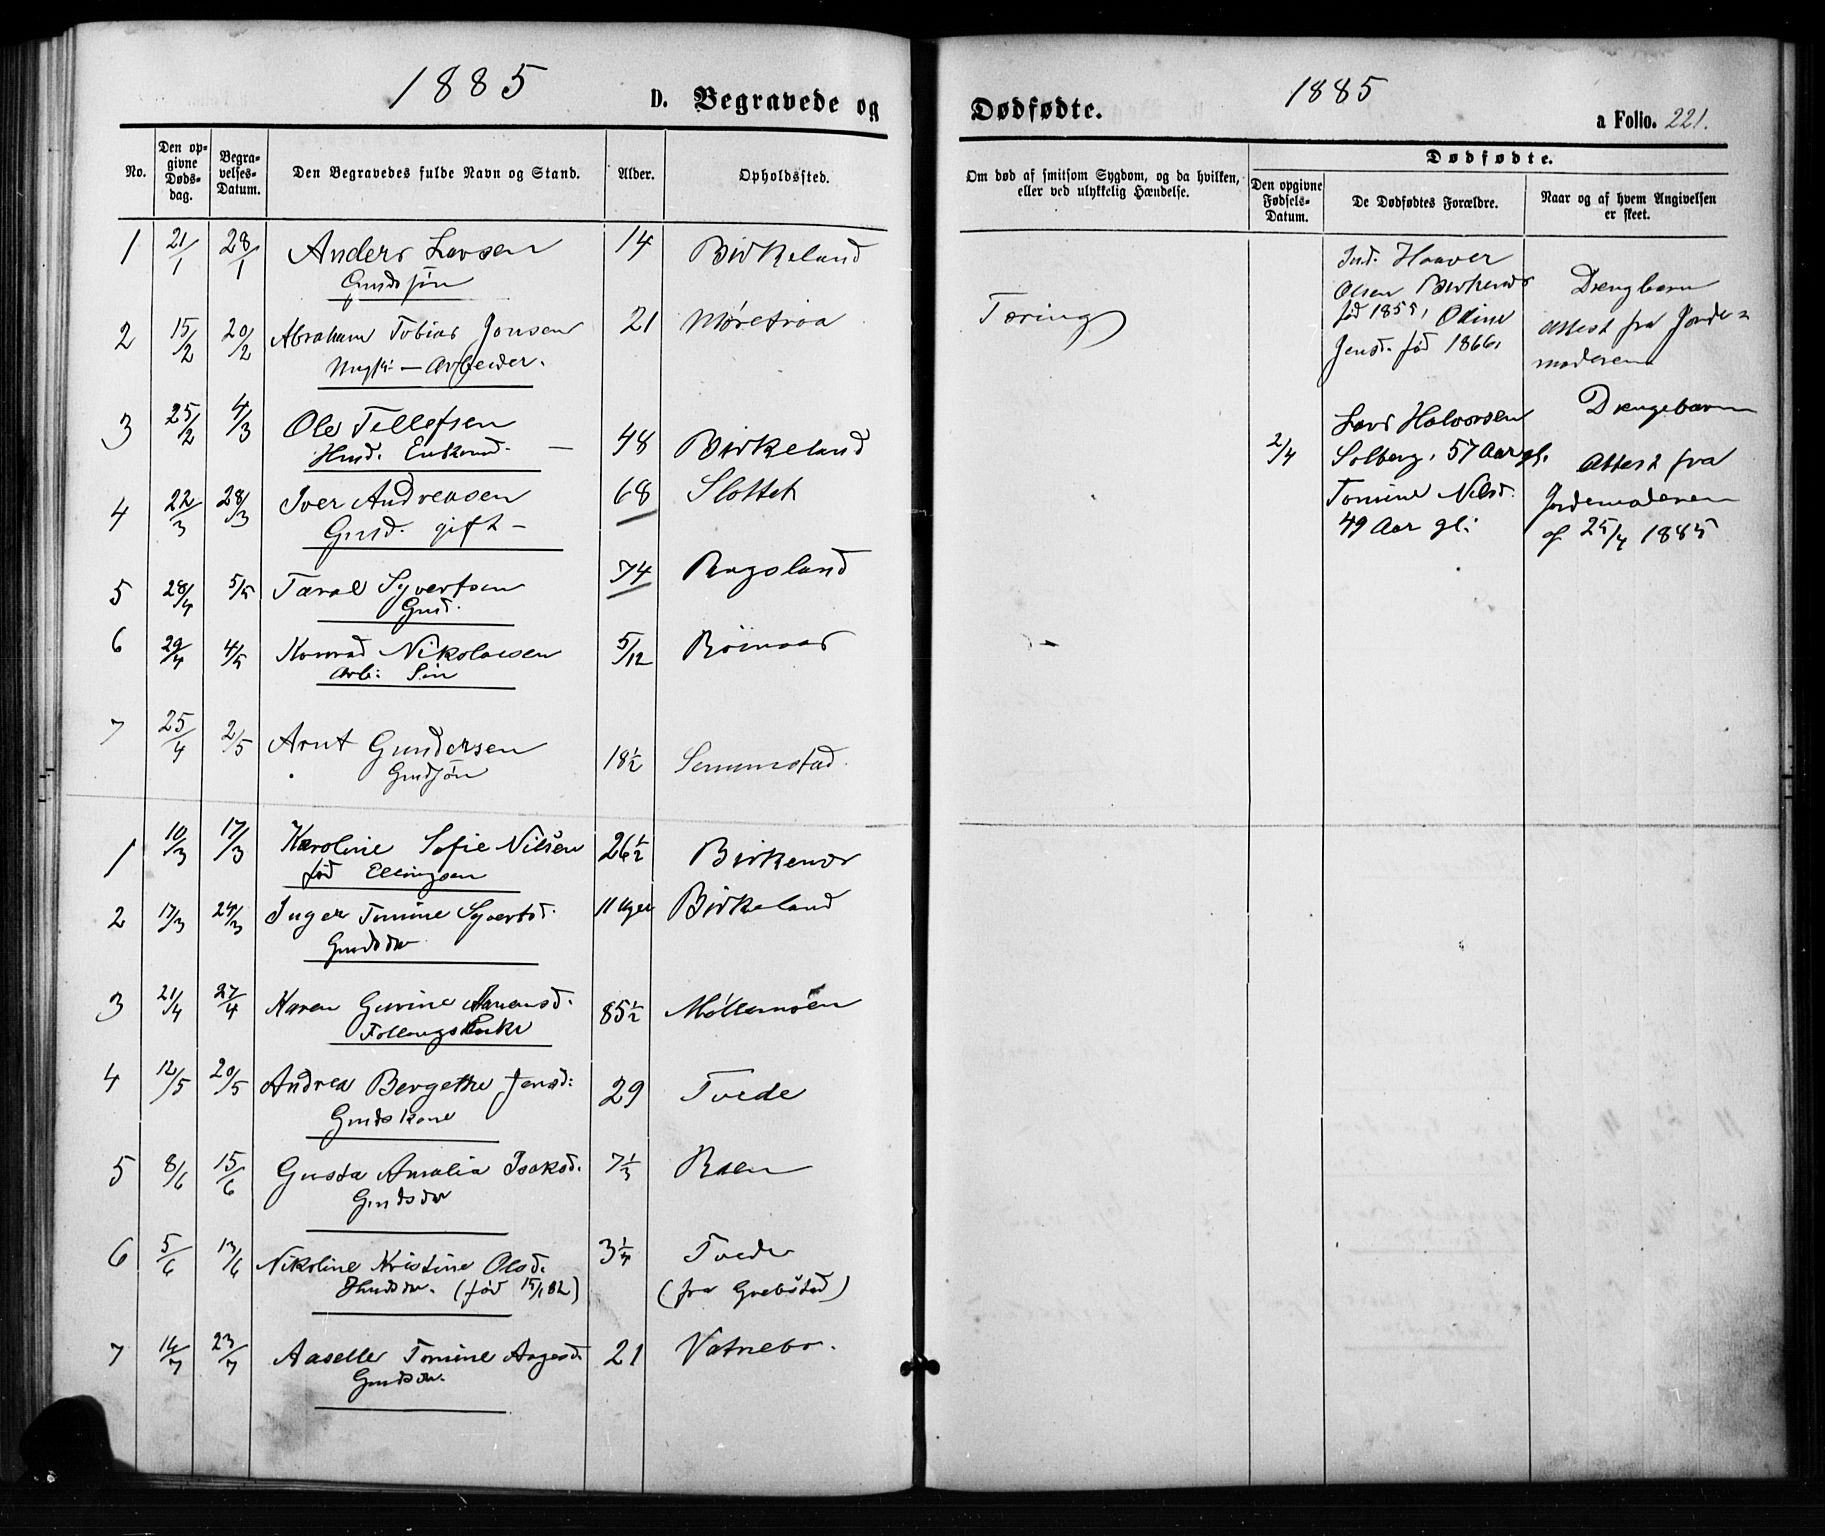 1885
D. Begravede og
No.
Den op-
givne
Døds-
dag.
Begra-
velses-
Datum.
Den Begravedes fulde Navn og Stand.
Alder.
Opholdssted.
1 21/1 28/1 Anders Larsen 14 Birkeland
Gmdssøn
2 15/2 20/2 Abraham Tobias Jonsen 21 Møretraa
Ungk: – Arbeider.
3 25/2 4/3 Ole Tellefsen 48 Birkeland
Hmd. Enkemd. –
4 22/3 28/3 Iver Andreasen 68 Slottet
Gmd. gift –
5 28/4 5/5 Taral Syvertsen 74 Rugsland
Gmd.
6 29/4 4/5 Konrad Nikolaisen 5/12
Arb: Søn
7 25/4 2/5 Arnt Gundersen 18½ Senumstad.
Gmdsøn
1 10/3 17/3 Karoline Sofie Nilsen 26½ Birkenes
fød Ellingsen
2 17/3 24/3 Inger Tomine Syvertsd. 11 Uger Birkeland
Gmdsdr
3 21/4 27/4 Karen Gurine Aanensd. 85½ Møllemoen
Enke
4 12/5 20/5 Andrea Bergethe Jensd: 29 Tvede
Gmdskone
5 8/6 15/6 Gusta Amalia Isaksd. 7⅓ Raen
Gmdsdr
6 5/6 13/6 Nikoline Kristine Olsd. 3¼ Tvede
Hmdsdr. (fød 15/1 82) (fra Grebstad)
7 16/7 23/7 Aaselle Tomine Aagesd. 21 Vatnebo.
Gmdsdr.
Dødfødte.
1885
a Folio. 221.
Om død af smitsom Sygdom, og da hvilken,
eller ved ulykkelig Hændelse.
Dødfødte.
Den opgivne
Fødsels-
Datum.
De Dødfødtes Forældre.
Naar og af hvem Angivelsen
er skeet.
Tæring
Ind. Haaver
Olsen Birkenes
fød 1855, Odine
Jensd. fød 1866.
Drengbarn
Attest fra Jorde=
moderen
2/4
Lars Halvorsen
Solberg, 57 Aar gl.
Tomine Nilsd.
49 Aar gl:
Drengebarn
Attest fra
Jordemoderen
af 25/4 1885